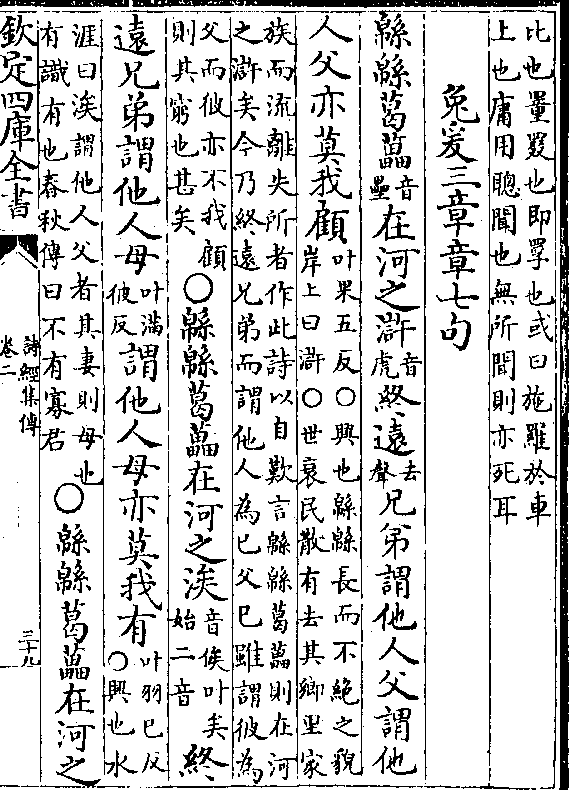 比也罿罬也即罦也或曰施羅於車
上也庸用聰聞也無所聞則亦死耳
兔爰三章章七句
緜緜葛藟音壘在河之滸音虎終遠去聲兄弟謂他人父謂他
人父亦莫我顧叶果五反○興也緜緜長而不絶之貌岸上曰滸○世衰民散有去其鄉里家
族而流離失所者作此詩以自歎言緜緜葛藟則在河之滸矣今乃終遠兄弟而謂他人為己父己雖謂彼為
父而彼亦不我顧則其窮也甚矣○緜緜葛藟在河之涘音俟叶矣始二音終
遠兄弟謂他人母叶滿彼反謂他人母亦莫我有叶羽已反○興也水
涯曰涘謂他人父者其妻則母也有識有也春秋傳曰不有寡君○緜緜葛藟在河之
欽定四庫全書
詩經集傳
卷二
三十九